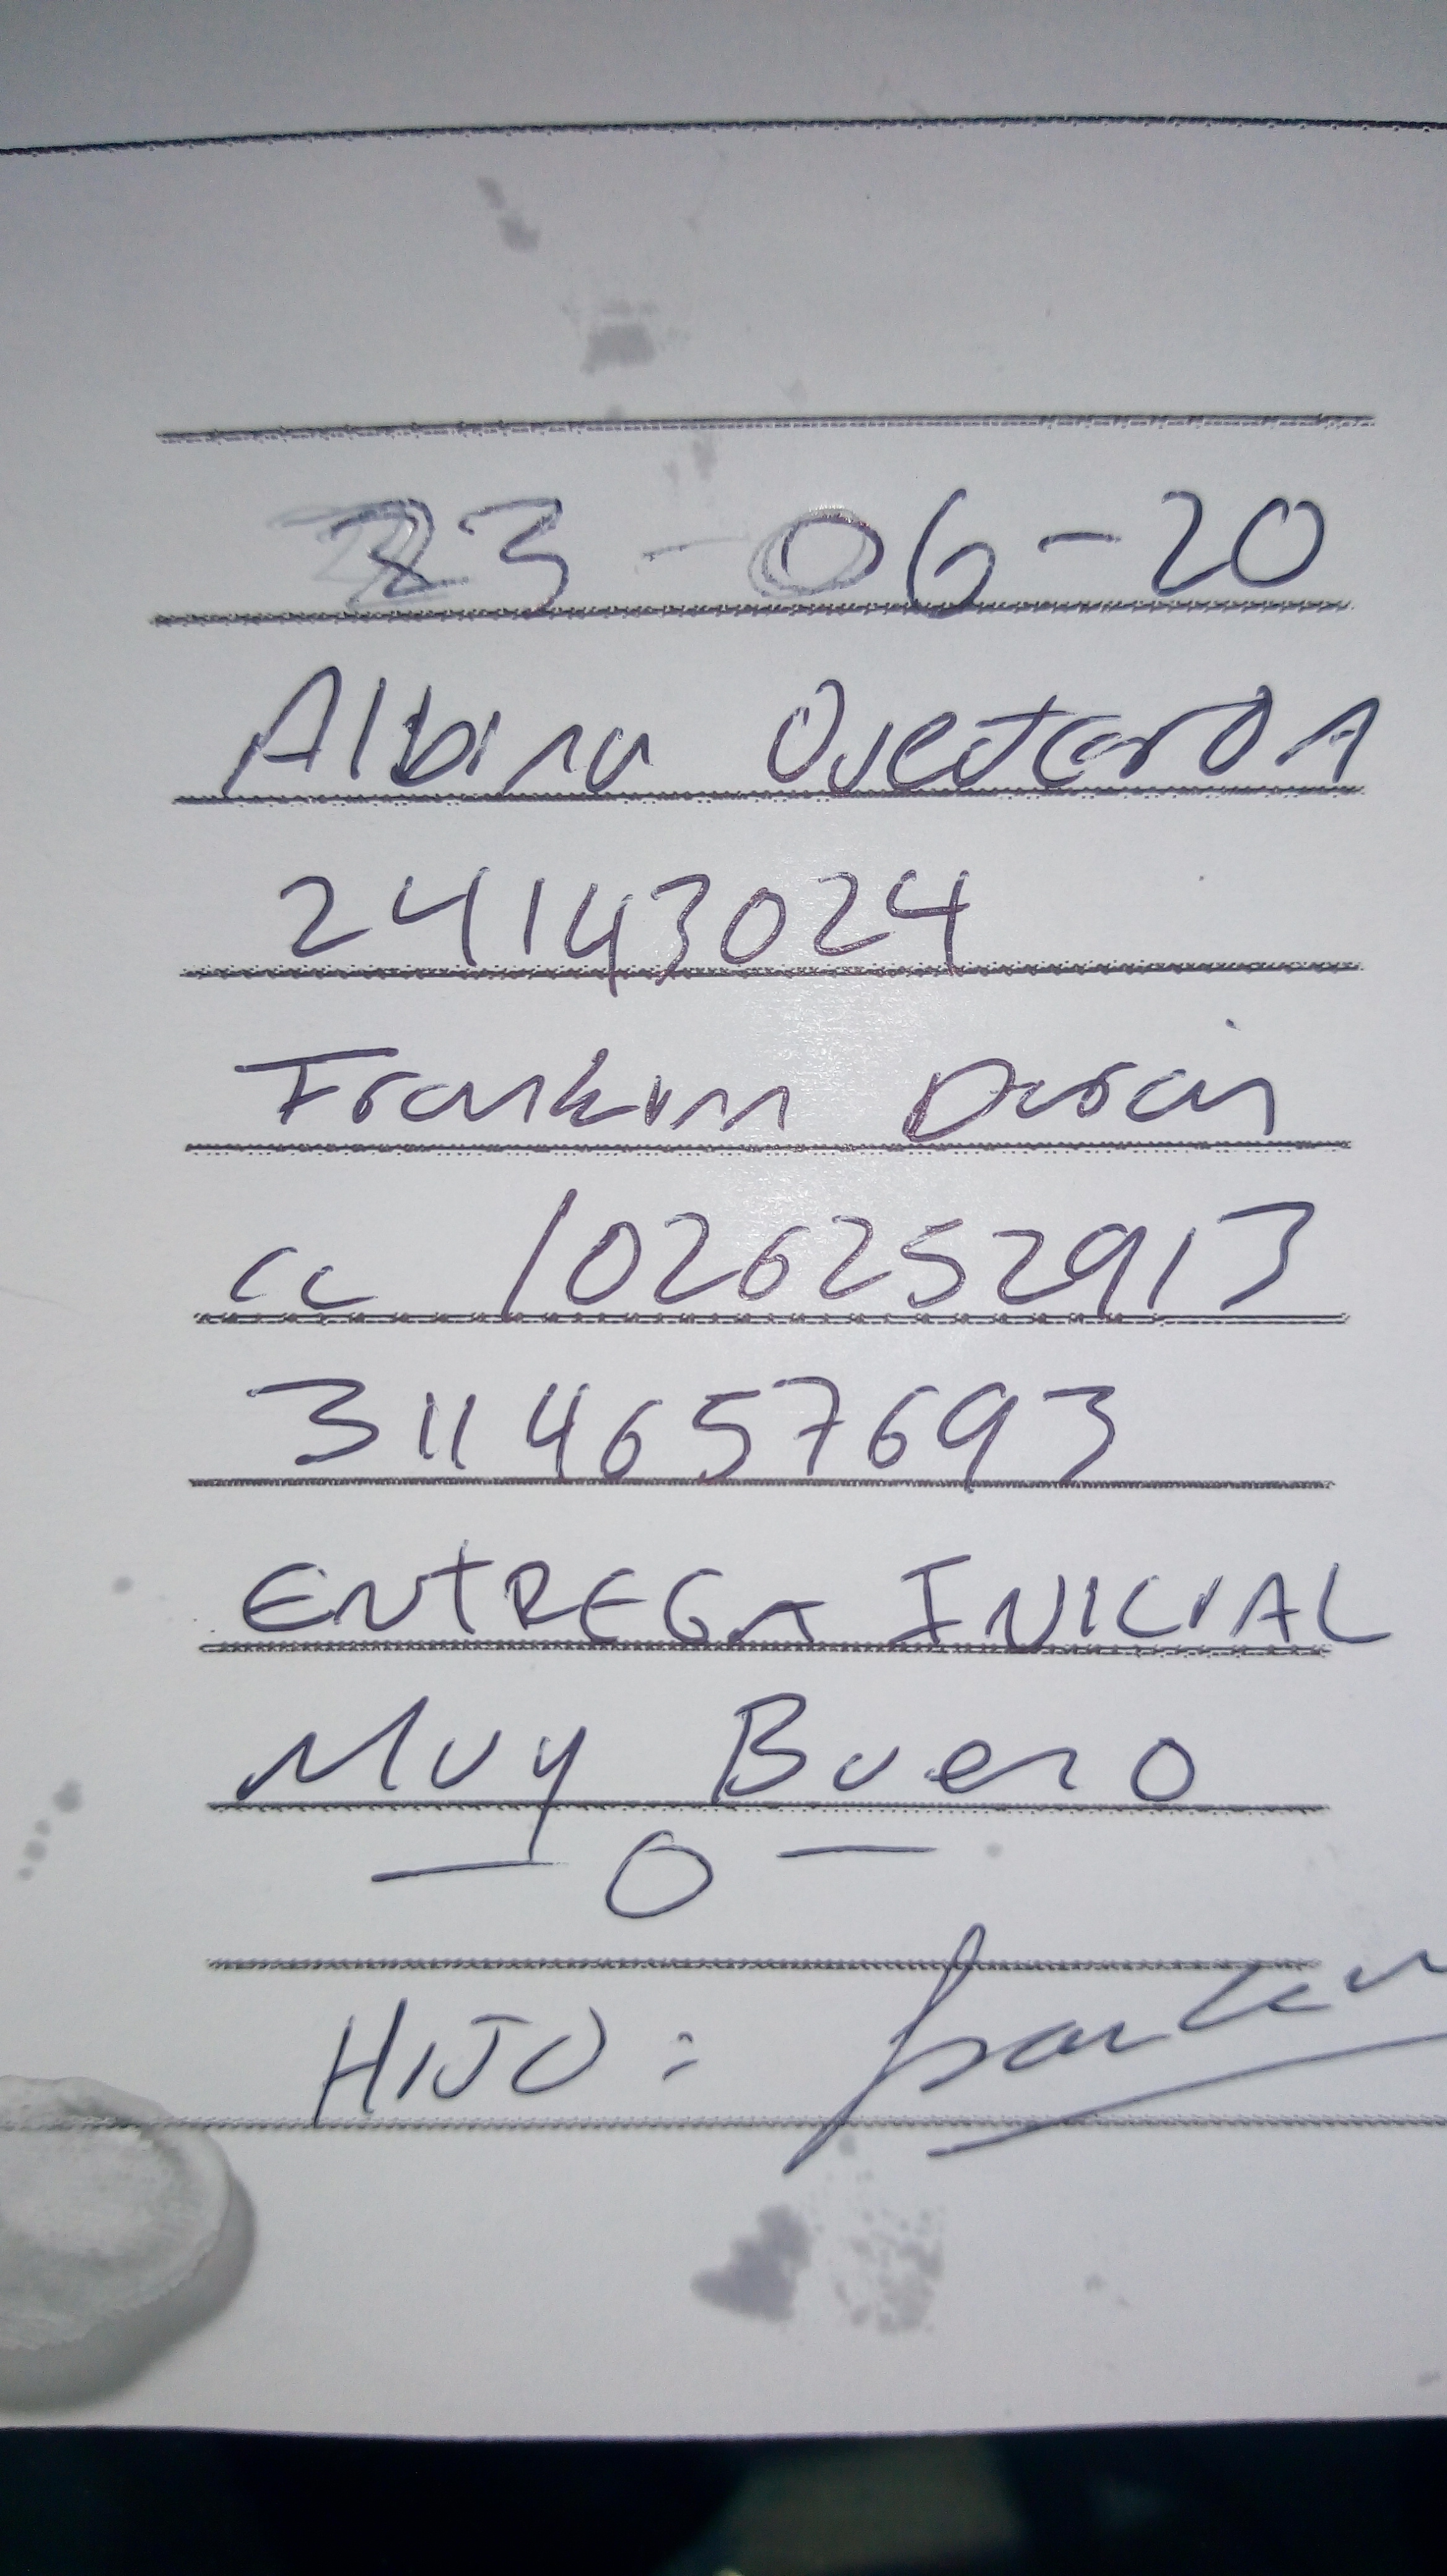 23-06-20
Albina
24143024
Franklin Durán
cc 1026252913
3114657693
ENTREGA INICIAL
Muy Bueno
— 0 —
HIJO: